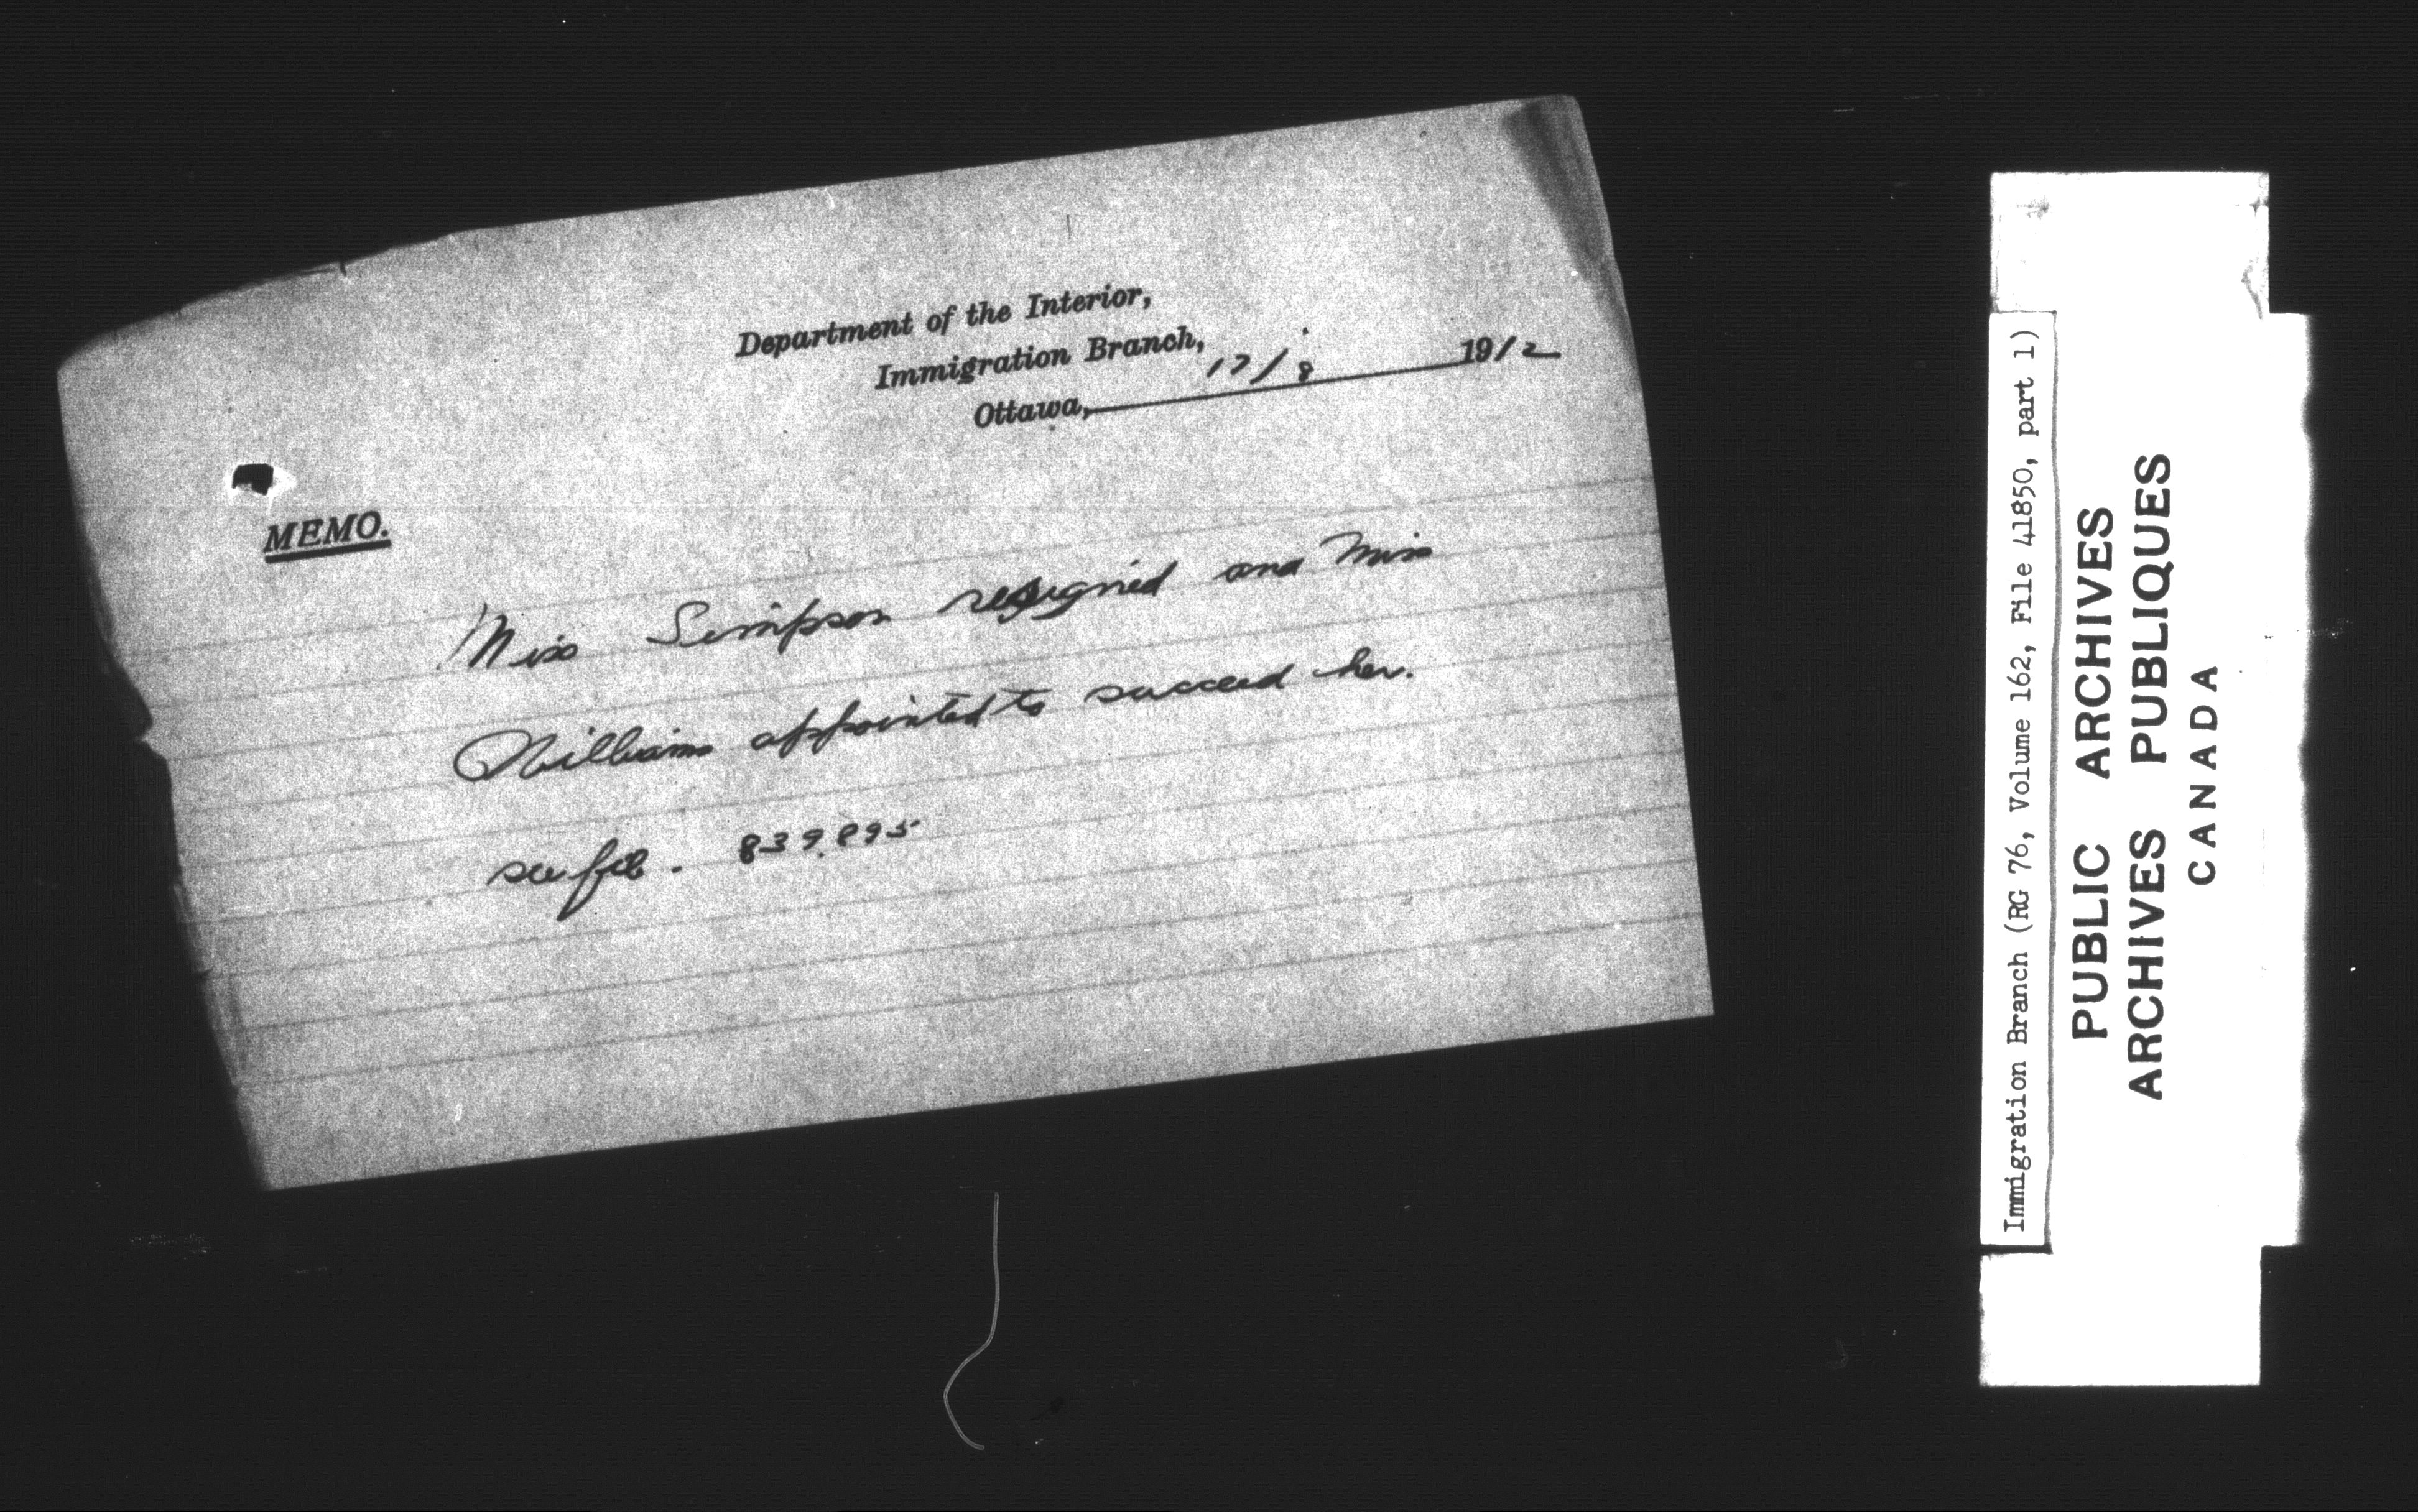 Department of the Interior,
Immigration Branch,
Ottawa, 17/8 1912
MEMO.
Miss Simpson resigned and Miss
Williams appointed to succeed her.
see file. 839895
Immigration Branch (RG 76, Volume 162, File 41850, part 1)
PUBLIC ARCHIVES
ARCHIVES PUBLIQUES
CANADA